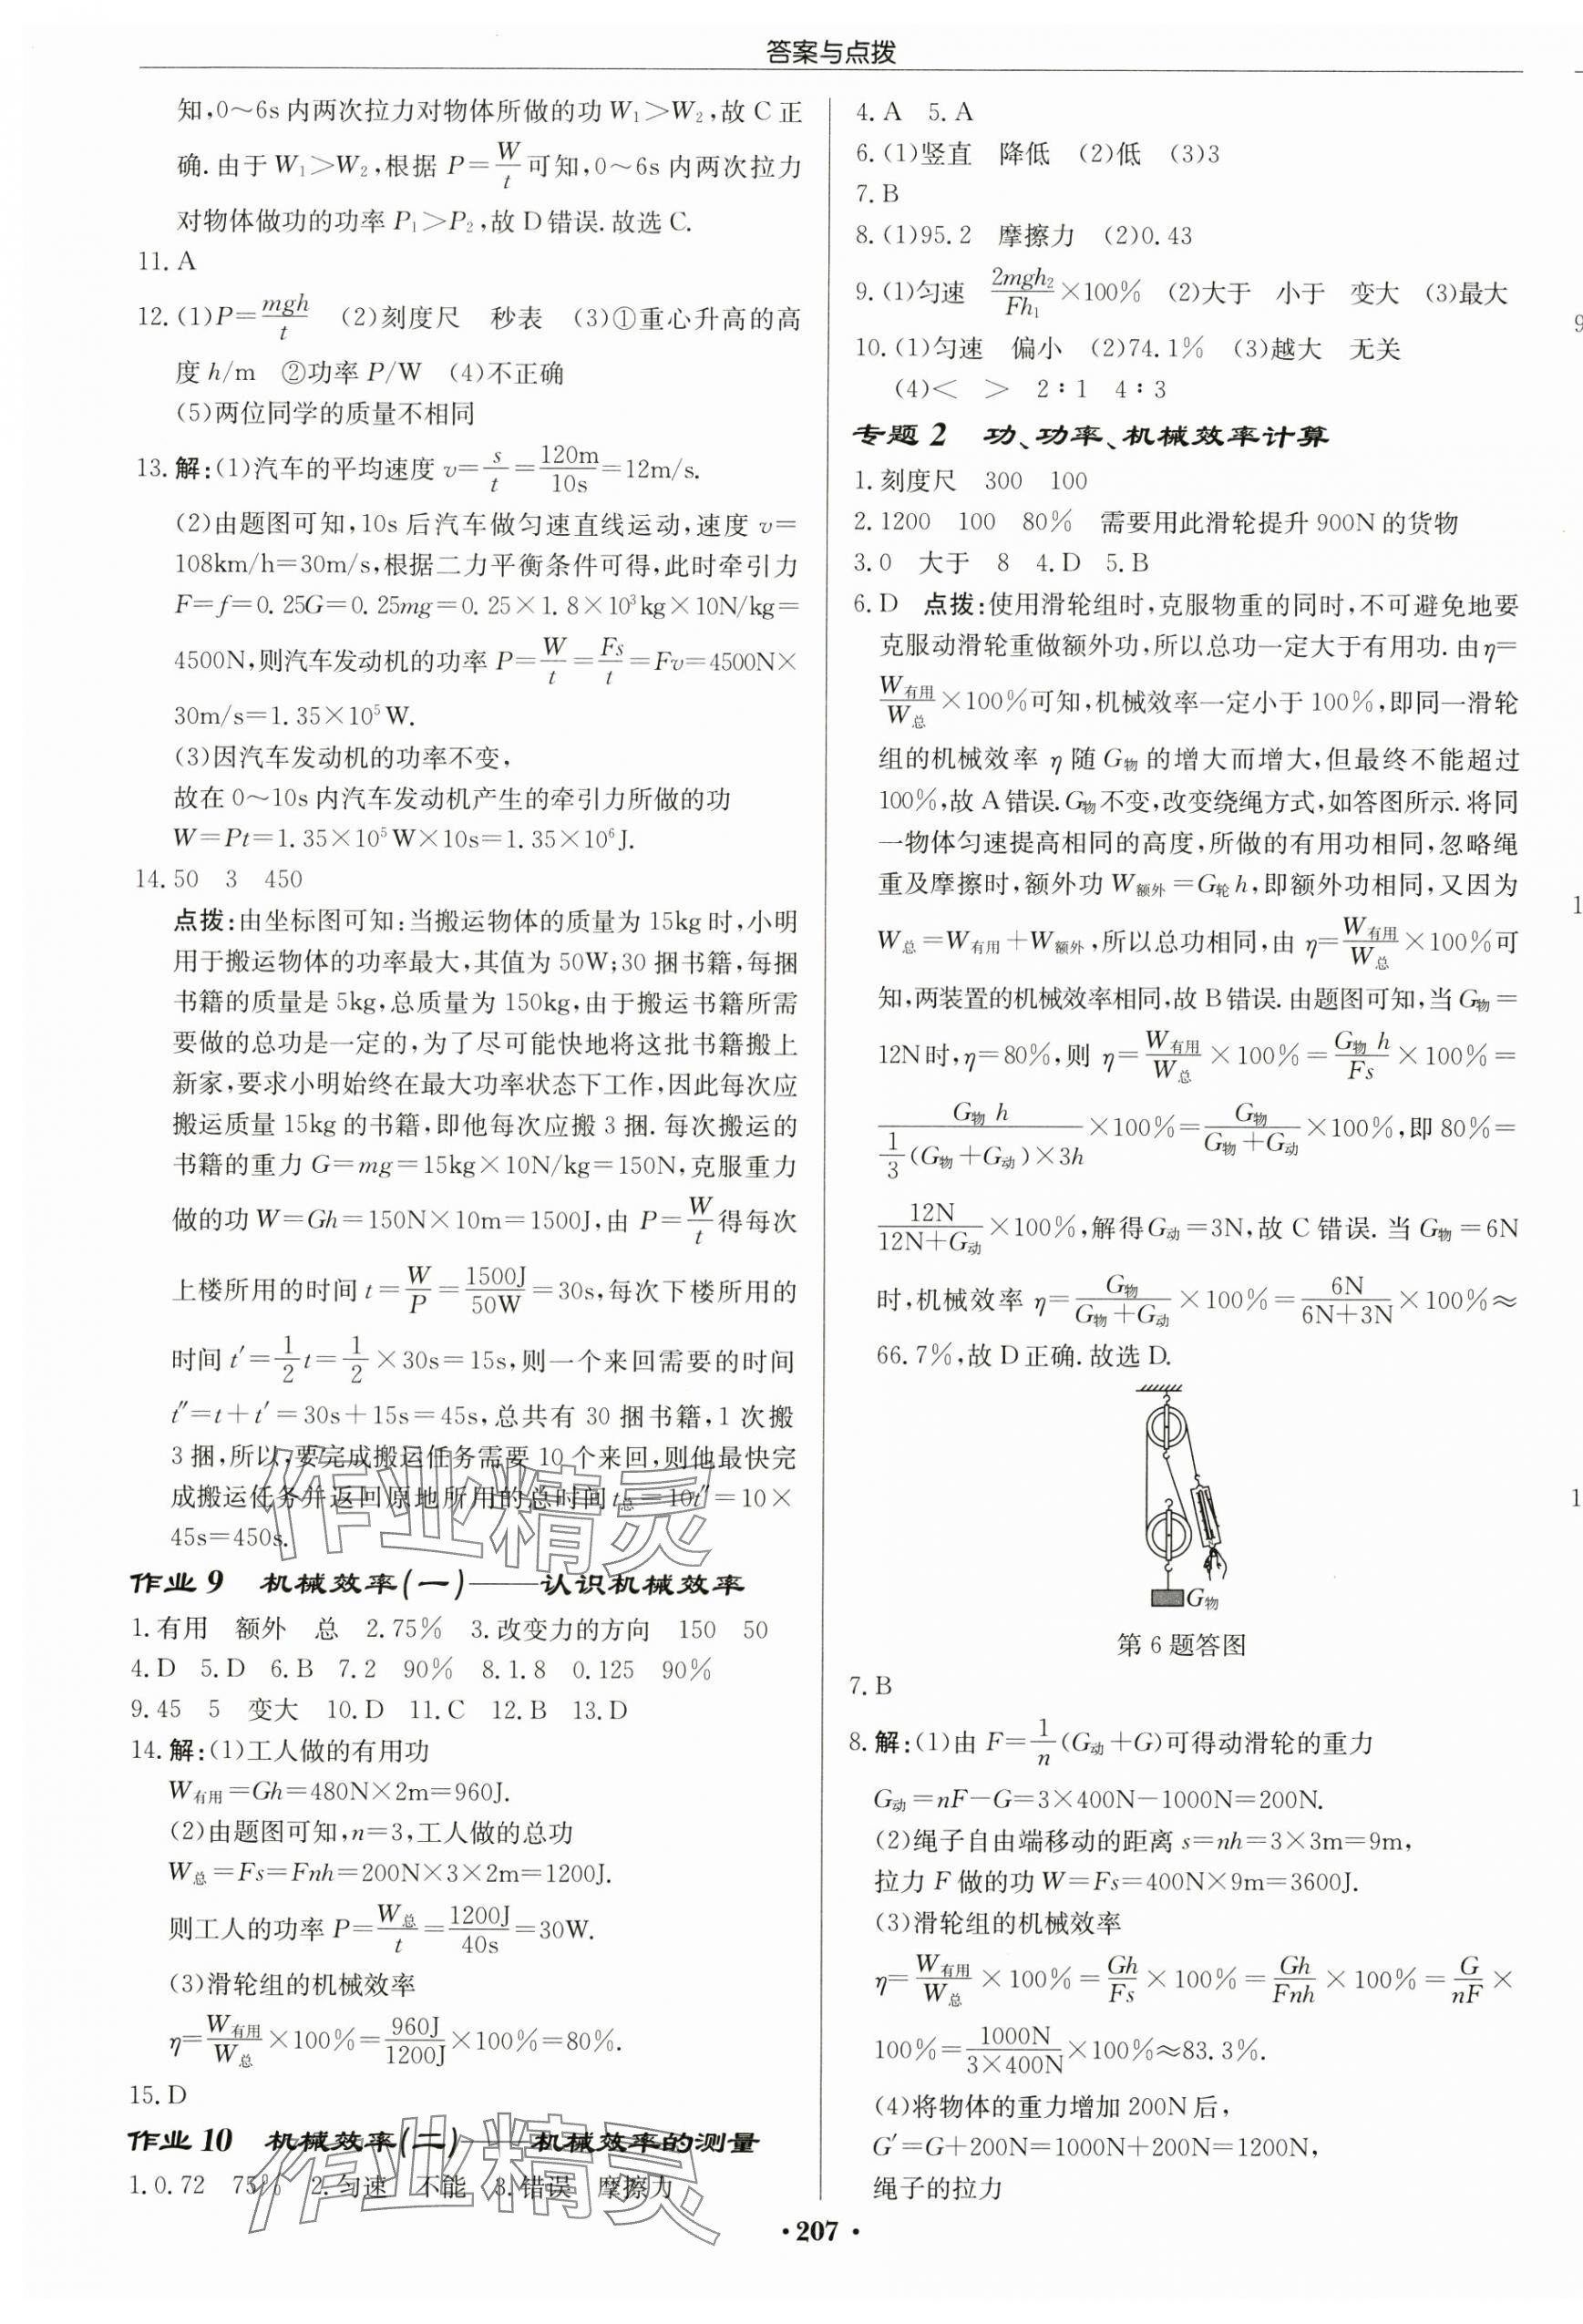 答案与点拨
知,0～6s内两次拉力对物体所做的功W₁＞W₂,故C正
确.由于W₁＞W₂,根据P=W/t可知,0～6s内两次拉力
对物体做功的功率P₁＞P₂,故D错误.故选C.
11.A
12.(1)P=mgh/t (2)刻度尺 秒表 (3)①重心升高的高
度h/m ②功率P/W (4)不正确
(5)两位同学的质量不相同
13.解:(1)汽车的平均速度v=s/t=120m/10s=12m/s.
(2)由题图可知,10s后汽车做匀速直线运动,速度v=
108km/h=30m/s,根据二力平衡条件可得,此时牵引力
F=f=0.25G=0.25mg=0.25×1.8×10³kg×10N/kg=
4500N,则汽车发动机的功率P=W/t=Fs/t=Fv=4500N×
30m/s=1.35×10⁵W.
(3)因汽车发动机的功率不变,
故在0～10s内汽车发动机产生的牵引力所做的功
W=Pt=1.35×10⁵W×10s=1.35×10⁶J.
14.50 3 450
点拨:由坐标图可知:当搬运物体的质量为15kg时,小明
用于搬运物体的功率最大,其值为50W;30捆书籍,每捆
书籍的质量是5kg,总质量为150kg,由于搬运书籍所需
要做的总功是一定的,为了尽可能快地将这批书籍搬上
新家,要求小明始终在最大功率状态下工作,因此每次应
搬运质量15kg的书籍,即他每次应搬3捆.每次搬运的
书籍的重力G=mg=15kg×10N/kg=150N,克服重力
做的功W=Gh=150N×10m=1500J,由P=W/t得每次
上楼所用的时间t=W/P=1500J/50W=30s,每次下楼所用的
时间t′=1/2t=1/2×30s=15s,则一个来回需要的时间
t″=t+t′=30s+15s=45s,总共有30捆书籍,1次搬
3捆,所以,要完成搬运任务需要10个来回,则他最快完
成搬运任务并返回原地所用的总时间t总=10t″=10×
45s=450s.
作业9 机械效率(一)——认识机械效率
1.有用 额外 总 2.75% 3.改变力的方向 150 50
4.D 5.D 6.B 7.2 90% 8.1.8 0.125 90%
9.45 5 变大 10.D 11.C 12.B 13.D
14.解:(1)工人做的有用功
W有用=Gh=480N×2m=960J.
(2)由题图可知,n=3,工人做的总功
W总=Fs=Fnh=200N×3×2m=1200J.
则工人的功率P=W总/t=1200J/40s=30W.
(3)滑轮组的机械效率
η=W有用/W总×100%=960J/1200J×100%=80%.
15.D
作业10 机械效率(二)——机械效率的测量
1.0.72 75% 2.匀速 不能 3.错误 摩擦力
4.A 5.A
6.(1)竖直 降低 (2)低 (3)3
7.B
8.(1)95.2 摩擦力 (2)0.43
9.(1)匀速 2mgh₂/Fh₁×100% (2)大于 小于 变大 (3)最大
10.(1)匀速 偏小 (2)74.1% (3)越大 无关
(4)＜ ＞ 2∶1 4∶3
专题2 功、功率、机械效率计算
1.刻度尺 300 100
2.1200 100 80% 需要用此滑轮提升900N的货物
3.0 大于 8 4.D 5.B
6.D 点拨:使用滑轮组时,克服物重的同时,不可避免地要
克服动滑轮重做额外功,所以总功一定大于有用功.由η=
W有用/W总×100%可知,机械效率一定小于100%,即同一滑轮
组的机械效率η随G物的增大而增大,但最终不能超过
100%,故A错误.G物不变,改变绕绳方式,如答图所示.将同
一物体匀速提高相同的高度,所做的有用功相同,忽略绳
重及摩擦时,额外功W额外=G轮h,即额外功相同,又因为
W总=W有用+W额外,所以总功相同,由η=W有用/W总×100%可
知,两装置的机械效率相同,故B错误.由题图可知,当G物=
12N时,η=80%,则η=W有用/W总×100%=G物h/Fs×100%=
G物h/(1/3(G物+G动)×3h)×100%=G物/(G物+G动)×100%,即80%=
12N/(12N+G动)×100%,解得G动=3N,故C错误.当G物=6N
时,机械效率η=G物/(G物+G动)×100%=6N/(6N+3N)×100%≈
66.7%,故D正确.故选D.
G物
第6题答图
7.B
8.解:(1)由F=1/n(G动+G)可得动滑轮的重力
G动=nF−G=3×400N−1000N=200N.
(2)绳子自由端移动的距离s=nh=3×3m=9m,
拉力F做的功W=Fs=400N×9m=3600J.
(3)滑轮组的机械效率
η=W有用/W总×100%=Gh/Fs×100%=Gh/Fnh×100%=G/nF×
100%=1000N/(3×400N)×100%≈83.3%.
(4)将物体的重力增加200N后,
G′=G+200N=1000N+200N=1200N,
绳子的拉力
•207•
9
1
1
作业精灵
作业精灵